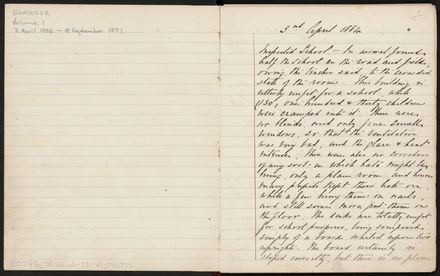 Volume 1
3 April 1884 - 18 September 1891
3rd April 1884
Inspected School - On arrival found
half the School on the road and field
owing the teacher said, to the crowded
state of the room. This building is
utterly unfit for a school, while
(130) one hundred & thirty children
were cramped into it. There were
no blinds and only four small
windows, so that the ventilation
was very bad, and the glare & heat
intense. There were also no corridors
of any sort in which hats might be
hung, only a plain room and hence
many pupils kept their hats on,
while a few hung them on nails
and still some more put them on
the floor. The desks are totally unfit
for school purposes, being composed
simply of a board nailed upon two
uprights. The board certainly is
sloped correctly, but there is no place